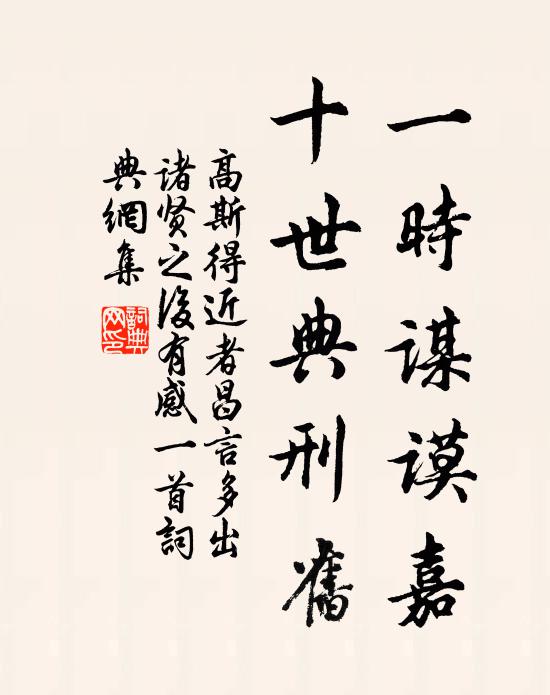 一時謀謨嘉
十世典刑舊
高斯得近者昌言多出
諸贤之後有感一首詞
典網集
詞典网印